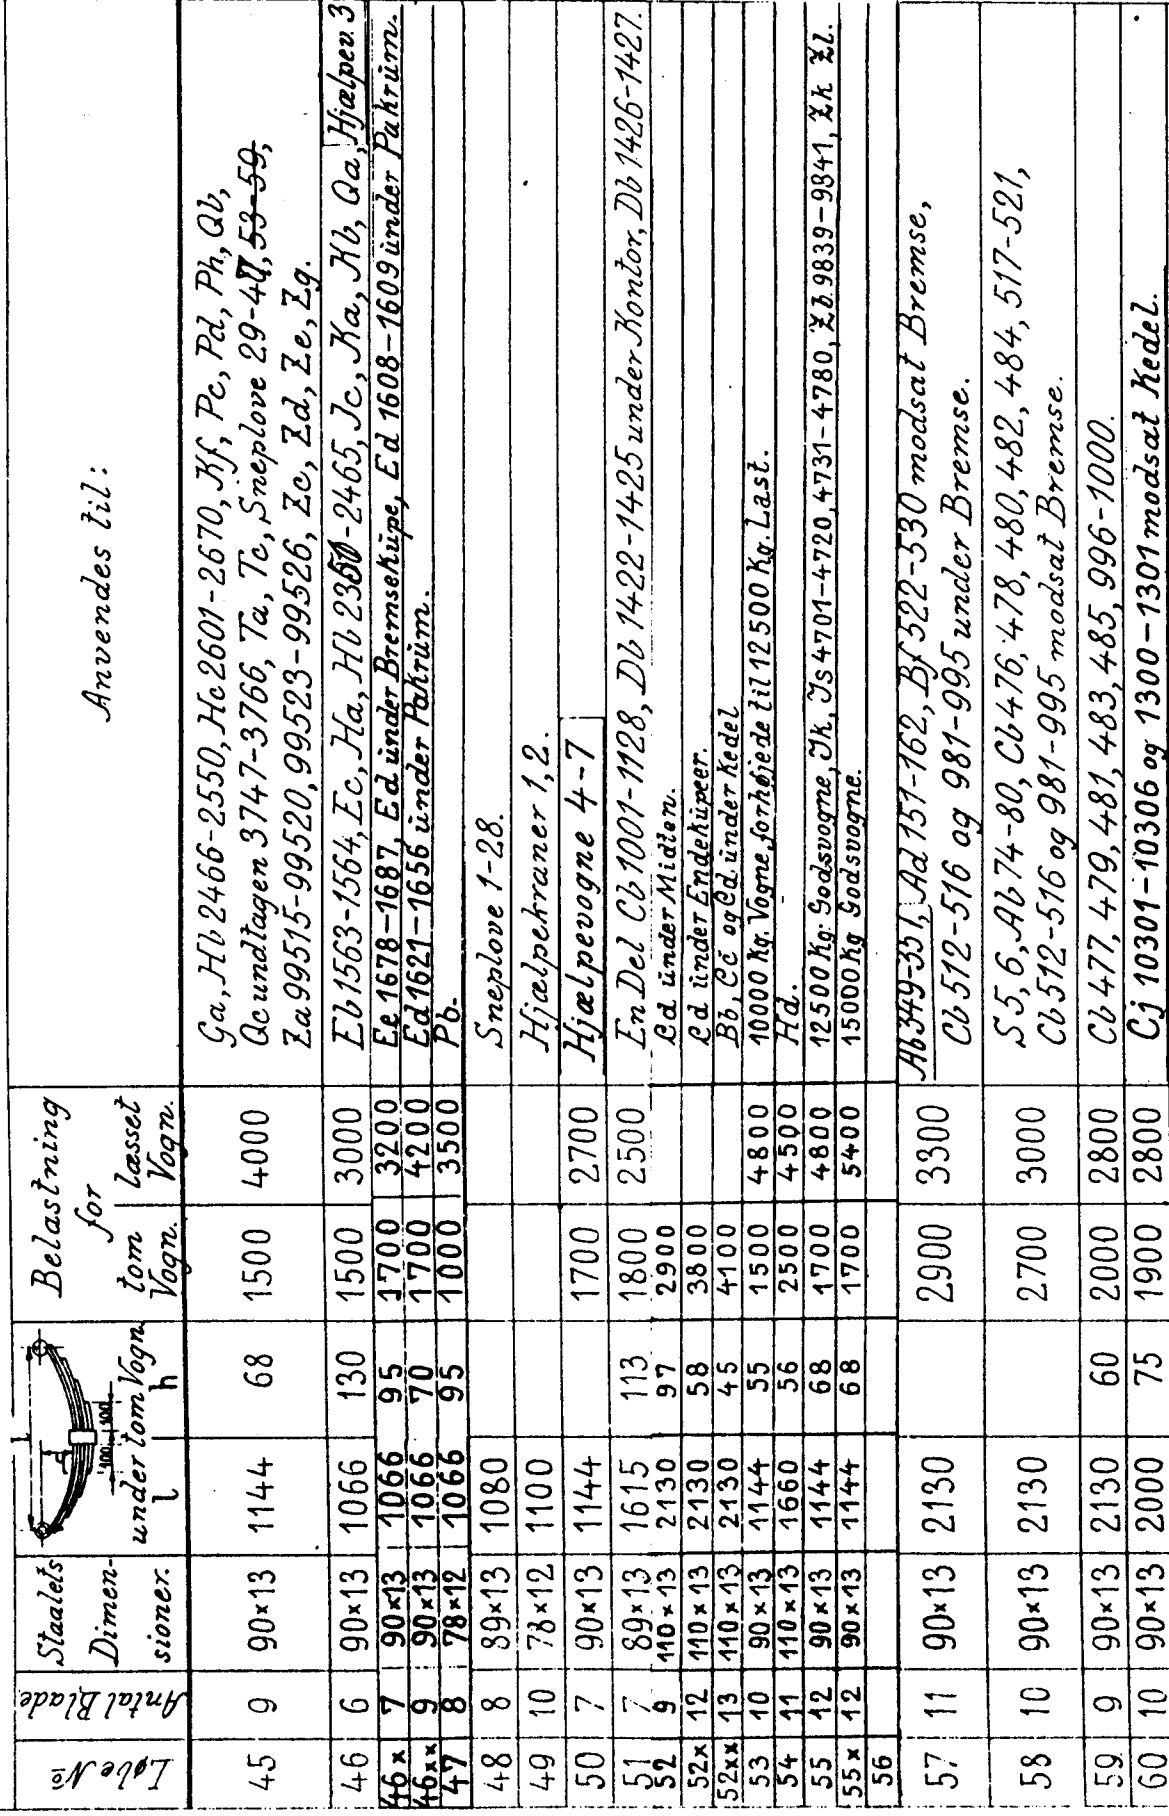 Løbe No
Antal Blade
Staalets Dimensioner.
under tom Vogn
l h
100 100
Belastning for
tom Vogn. læsset Vogn.
Anvendes til:
45 9 90×13 1144 68 1500 4000 Ga, Hb 2466-2550, Hc 2601-2670, Kf, Pc, Pd, Ph, Qb,
Qc undtagen 3747-3766, Ta, Tc, Sneplove 29-47, 53-59,
Za 99515-99520, 99523-99526, Zc, Zd, Ze, Zg.
46 6 90×13 1066 130 1500 3000 Eb 1563-1564, Ec, Ha, Hb -2465, Jc, Ka, Kb, Qa, Hjælpev. 3
46x 7 90×13 1066 95 1700 3200 Ee 1678-1687, Ed under Bremsekupe, Ed 1608-1609 under Pakrum.
46xx 9 90×13 1066 70 1700 4200 Ed 1621-1656 under Pakrum.
47 8 78×12 1066 95 1000 3500 Pb.
48 8 89×13 1080 Sneplove 1-28.
49 10 78×12 1100 Hjælpekraner 1, 2.
50 7 90×13 1144 1700 2700 Hjælpevogne 4-7
51 7 89×13 1615 113 1800 2500 En Del Cb 1001-1128, Db 1422-1425 under Kontor, Db 1426-1427.
52 9 110×13 2130 97 2900 Cd under Midten.
52x 12 110×13 2130 58 3800 Cd under Endekupeer.
52xx 13 110×13 2130 45 4100 Bb, Cc og Cd under Kedel
53 10 90×13 1144 55 1500 4800 10000 Kg. Vogne, forhøjede til 12500 Kg. Last.
54 11 110×13 1660 56 2500 4500 Hd.
55 12 90×13 1144 68 1700 4800 12500 Kg. Godsvogne, Jk, Js 4701-4720, 4731-4780, Zb 9839-9841, Zk Zl.
55x 12 90×13 1144 68 1700 5400 15000 Kg Godsvogne.
56
57 11 90×13 2130 2900 3300 Ab 349-351, Ad 151-162, Bf 522-530 modsat Bremse,
Cb 512-516 og 981-995 under Bremse.
58 10 90×13 2130 2700 3000 S 5, 6, Ab 74-80, Cb 476, 478, 480, 482, 484, 517-521,
Cb 512-516 og 981-995 modsat Bremse.
59 9 90×13 2130 60 2000 2800 Cb 477, 479, 481, 483, 485, 996-1000.
60 10 90×13 2000 75 1900 2800 Cj 10301-10306 og 1300-1301 modsat Kedel.